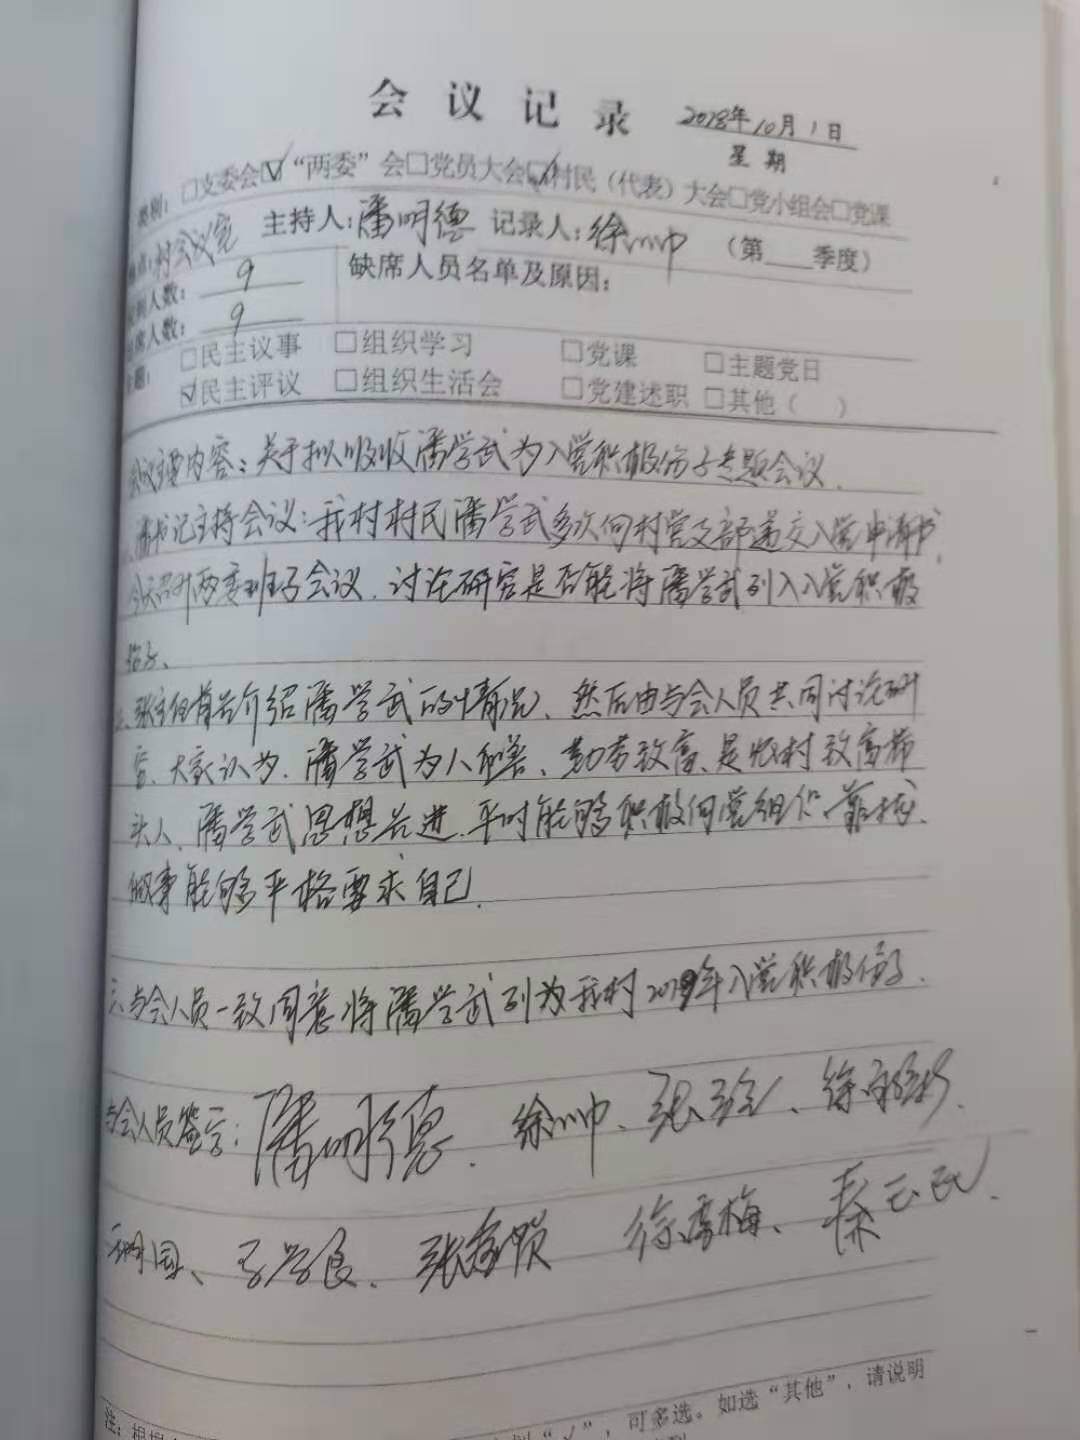 会议记录
2018年10月1日
星期
类别：□支委会☑“两委”会□党员大会☑村民（代表）大会□党小组会□党课
村会议室 主持人：潘明德 记录人：徐帅 （第___季度）
人数：9 缺席人员名单及原因：
席人数：9
题：□民主议事 □组织学习 □党课 □主题党日
☑民主评议 □组织生活会 □党建述职 □其他（ ）
会议主要内容：关于拟吸收潘学武为入党积极份子专题会议.
、潘书记主持会议：我村村民潘学武多次向村党支部递交入党申请书，
今天召开两委班子会议，讨论研究是否能将潘学武列入入党积极
份子、
、张主任首先介绍潘学武的情况、然后由与会人员共同讨论研
究、大家认为，潘学武为人和善、勤劳致富、是农村致富带
头人、潘学武思想先进，平时能够积极向党组织靠拢、
做事能够严格要求自己.
三、与会人员一致同意将潘学武列为我村2018年入党积极份子.
与会人员签字：潘明德、徐帅、张
国、张 徐雪梅、秦
“√”，可多选。如选“其他”，请说明